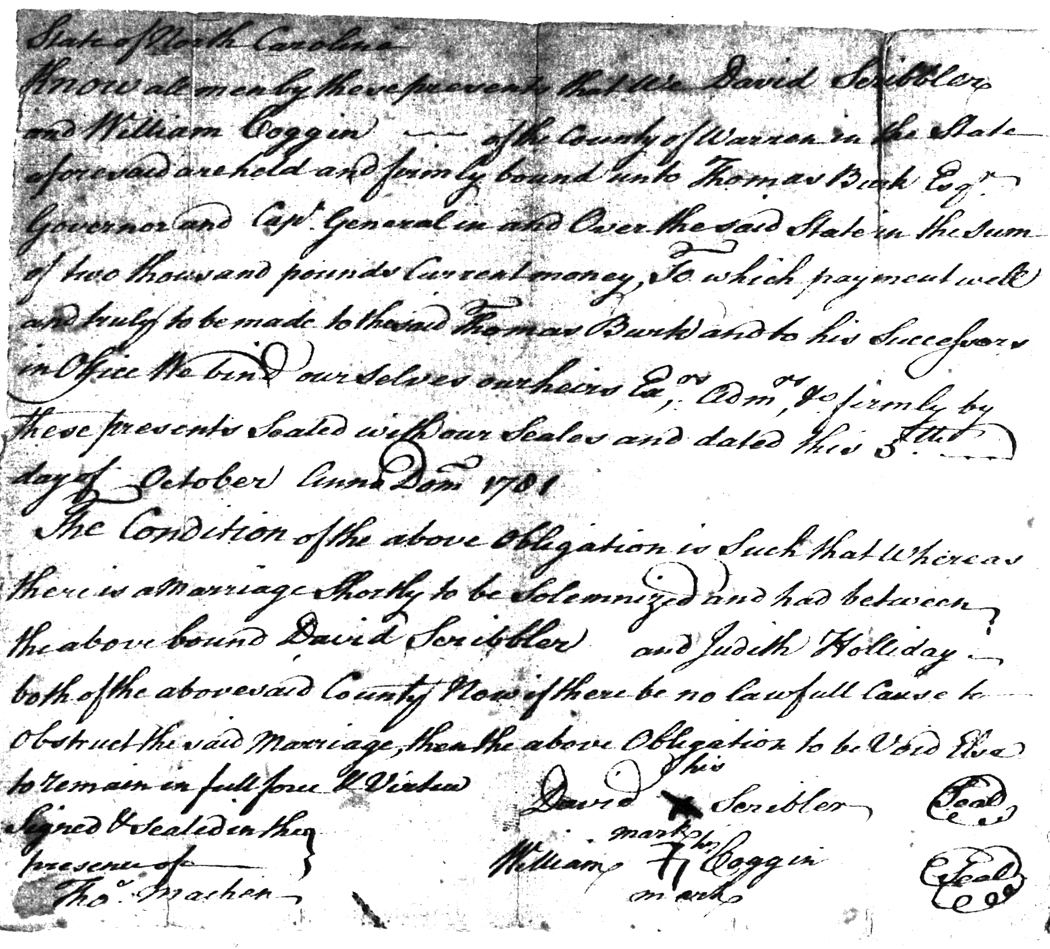 State of North Carolina
Know all men by these presents that We David Scribbler
and William Coggin of the County of Warren in the State
aforesaid are held and firmly bound unto Thomas Burk Esqr.
Governor and Capt. General in and Over the said State in the sum
of two thousand pounds Current money, To which payment well
and truly to be made to the said Thomas Burk and to his Successors
in Office We bind ourselves our heirs Exors, Admors, &c firmly by
these presents Sealed with our Seales and dated this 5th
day of October Anno Dom 1781
The Condition of the above Obligation is Such that Whereas
there is a Marriage Shortly to be Solemnized and had between
the above bound David Scribbler and Judith Holliday
both of the abovesaid County Now if there be no lawfull Cause to
Obstruct the said Marriage, then the above Obligation to be Void Else
to remain in full force & Virtue
his
David X Scribler Seal
mark
Signed & sealed in the
presence of
his
William Coggin Seal
mark
Thos. Machen